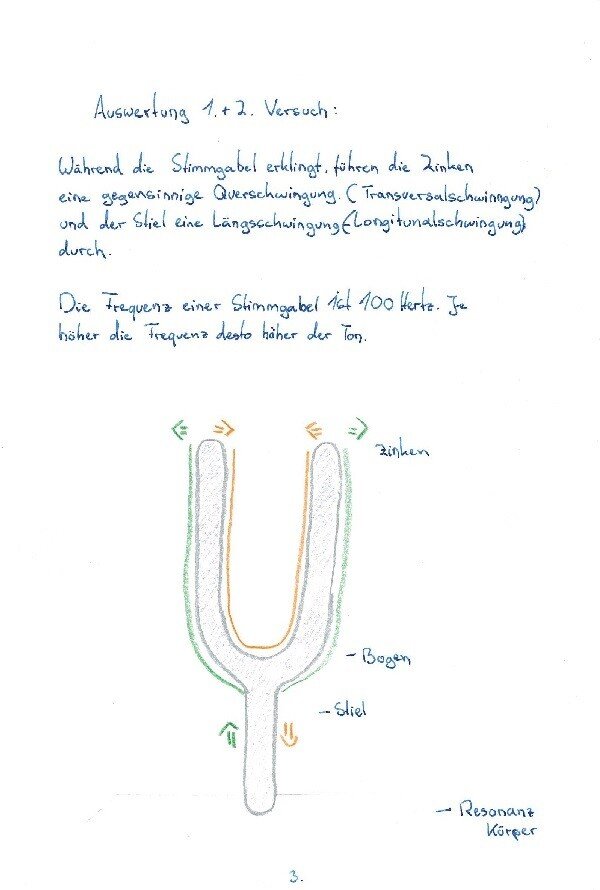 Auswertung 1.+2. Versuch:
Während die Stimmgabel erklingt, führen die Zinken
eine gegensinnige Querschwingung. (Transversalschwinngung)
und der Stiel eine Längsschwingung (Longitunalschwingung)
durch.
Die Frequenz einer Stimmgabel ist 100 Hertz. Je
höher die Frequenz desto häher der Ton.
Zinken
- Bogen
- Stiel
- Resonanz
Körper
3.